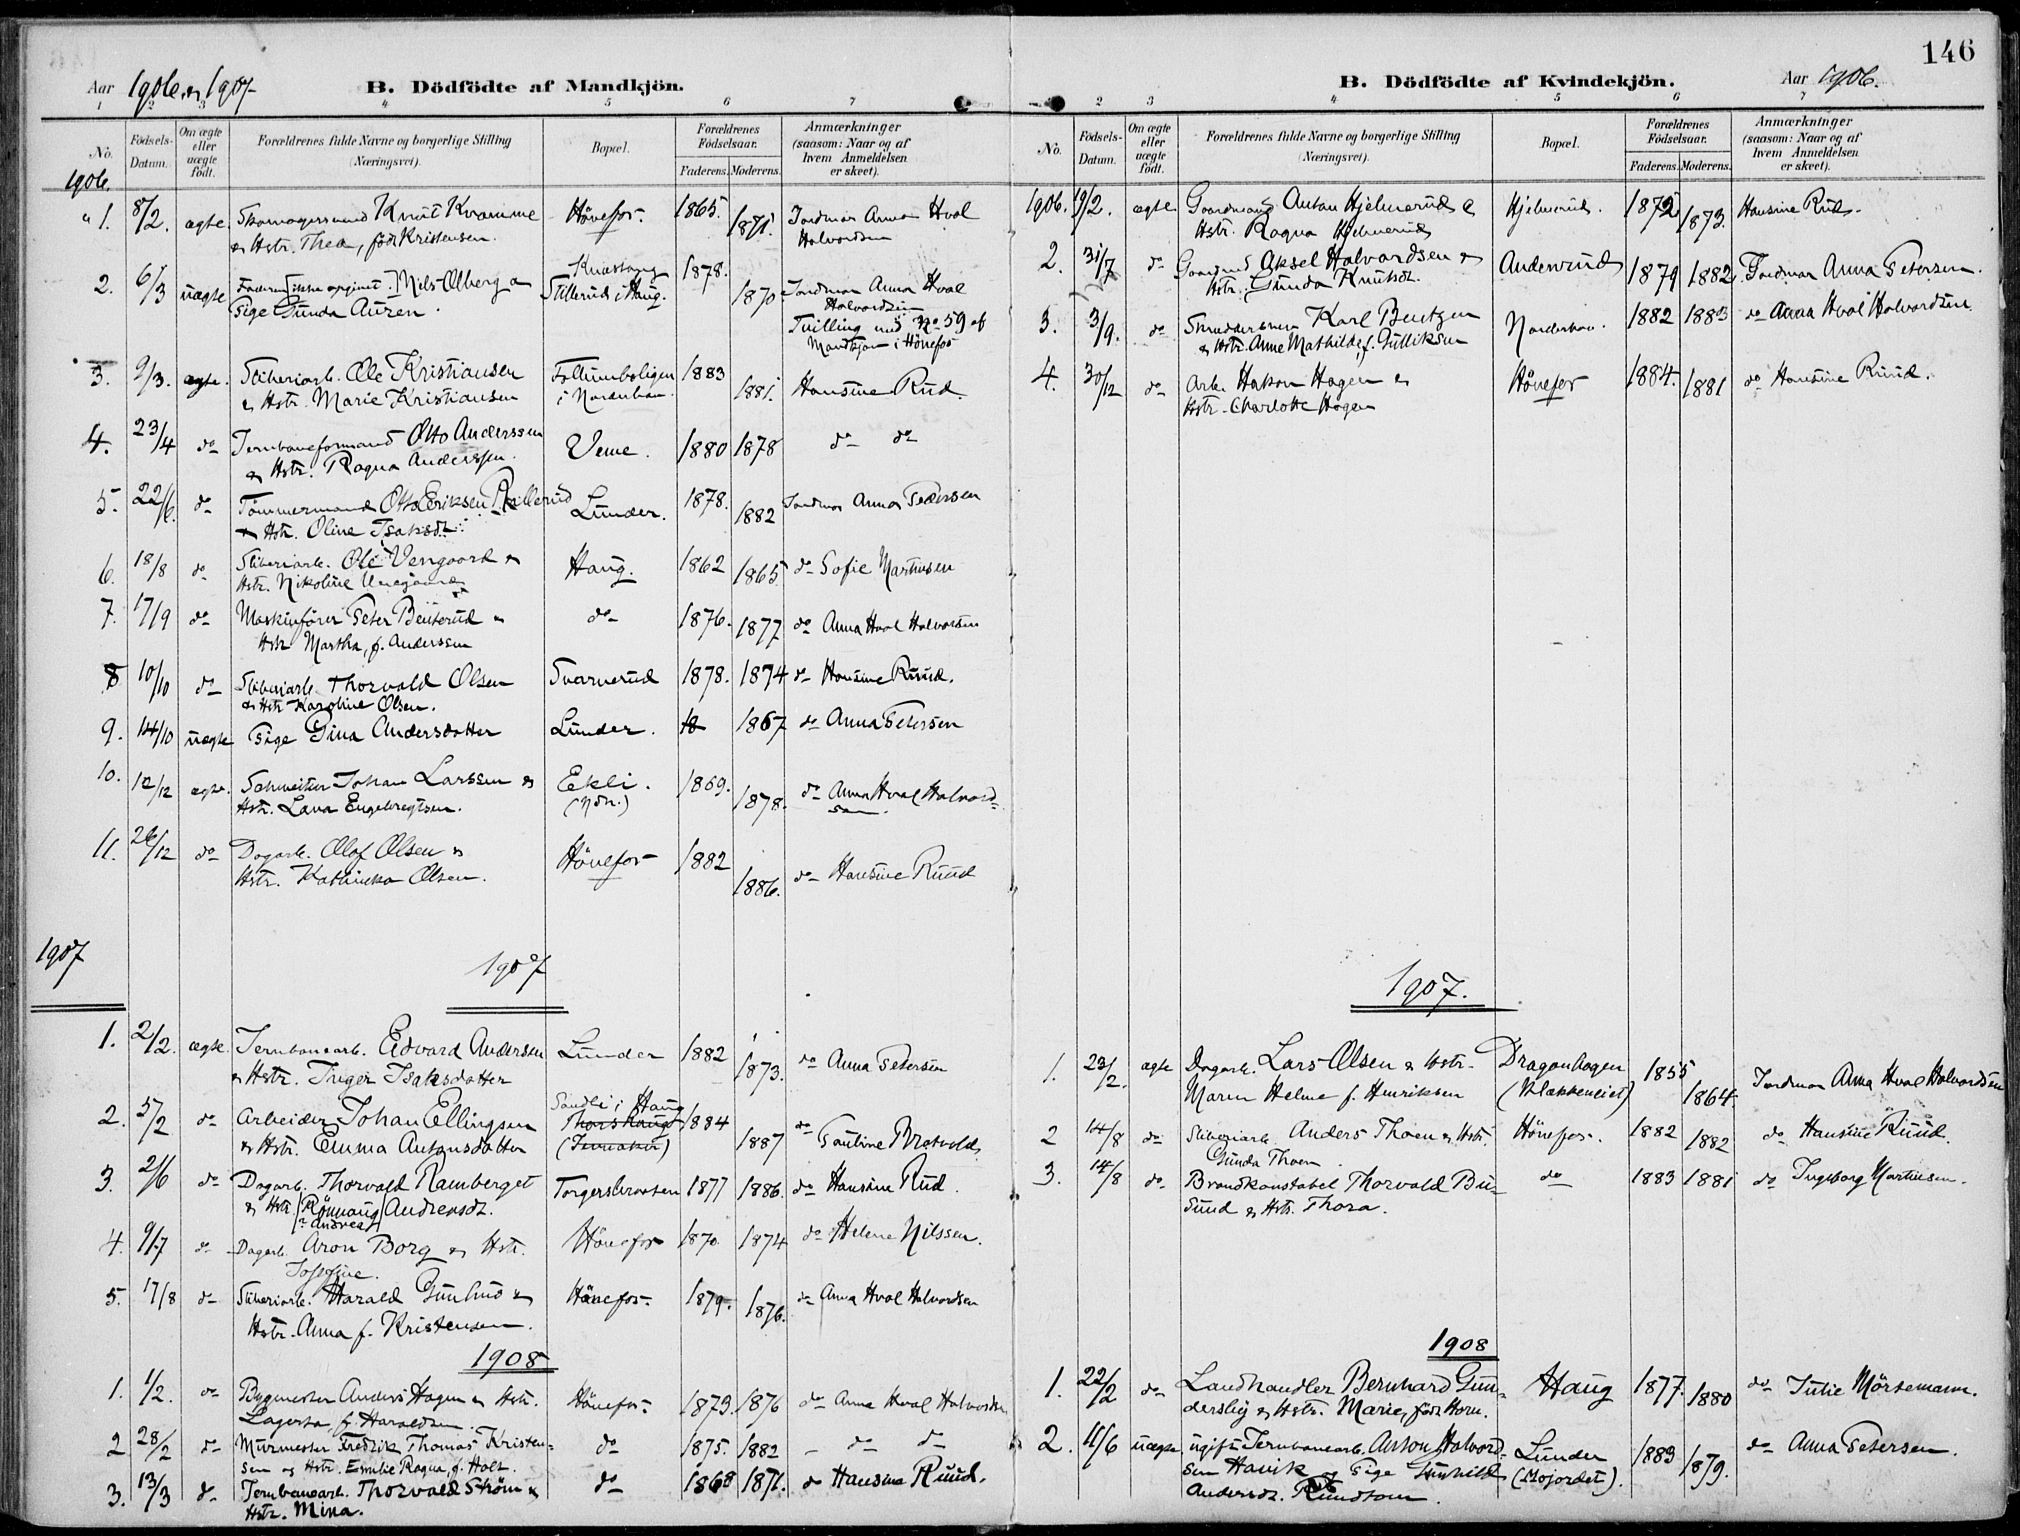 146
Aar 1906 og 1907
B. Dödfödte af Mandkjön.
1 2 3 4 5 6 7
No.
Födsels-Datum.
Om ægte eller uægte födt.
Forældrenes fulde Navne og borgerlige Stilling (Næringsvei).
Bopæl.
Forældrenes Födselsaar.
Faderens. Moderens.
Anmærkninger (saasom: Naar og af hvem Anmeldelsen er skeet).
1906.
" 1. 8/2. ægte. Skomagersvend Knut Kvamme Hönefos. 1865. 1871. Jordmor Anna Hval
& Hstr. Thea, född Kristensen. Halvordsen
2. 6/3 uægte Faderen ikke opgivet. Nils Ølberg & Knæstang 1878. 1870 Jordmor Anna Hval
Pige Gunda Auren. Stillerud i Haug. Halvordsen
Tvilling med No 59 af
Mandkjøn i Hönefos
3. 9/3. ægte. Sliberiarb. Ole Kristiansen Follumboligen 1883 1881. Hansine Rud.
& Hstr. Marie Kristiansen i Norderhov.
4. 23/4 do Jernbaneformand Otto Anderssen Veme. 1880 1878 do do
& Hstr. Ragna Anderssen.
5. 22/6. do Tömmermand Otto Eriksen Lunder. 1878. 1882 Jordmor Anna Pedersen
& Hstr. Oline Isaksdt.
6. 18/8 do Sliberiarb. Ole Vengaard & Haug. 1862 1865 do Sofie Martinsen
Hstr. Nikoline
7. 17/9 do Maskinfører Peter Benterud & do 1876. 1877 do Anna Hval Halvorsen
Hstr Martha, f. Anderssen
8 10/10 do Sliberiarb. Thorvald Olsen Svarverud 1878. 1874 do Hansine Ruud.
& Hstr Karoline Olsen.
9. 14/10 uægte Pige Gina Andersdatter Lunder. 18 1867 do Anna Petersen
10. 12/12 ægte. Schweitser Johan Larssen & Ekli. 1869. 1878. do Anna Hval Halvord-
Hstr. Lava Engebregtsen. (Ndr.) sen
11. 26/12 do Dagarb. Olaf Olsen & Hönefos 1882 1886. do Hansine Ruud
Hstr. Kathinka Olsen.
1907 1907
1. 2/2. ægte. Jernbanearb. Edvard Andersen Lunder 1882 1873. do Anna Petersen
& Hstr. Inger Isaksdatter
2. 5/2 do Arbeider Johan Ellingsen Sandli i Haug 1884 1887 do Pauline Bratvold
& Hstr. Emma Antonsdatter
3. 2/6 do Dagarb. Thorvald Ramberget Torgersbraaten 1877 1886. do Hansine Rud.
& Hstr Rönnaug Andrensdt.
? Andreas
4. 9/7 do Dagarb. Aron Borg & Hstr. Hönefos 1870 1874 do Helene Nilssen.
Josefine.
5. 17/8 do Sliberiarb. Harald & Hönefos. 1879. 1876. do Anna Hval Halvordsen
Hstr. Anna f. Kristensen.
1908
1. 1/2. do Bygmester Anders Hagen & Hstr. Hönefos. 1873. 1876 do Anna Hval Halvordsen
Lagerta f. Haraldsen.
2 28/2 do Murmester Fredrik Thomas Kristen- do 1875. 1882 do do
sen og Hstr. Emilie Ragna, f. Holt.
3. 13/3 do Jernbanearb. Thorvald Ström & do 1868 1871. do Hansine Ruud.
Hstr. Mina.
B. Dödfödte af Kvindekjön.
Aar 1906.
2 3 4 5 6 7
No.
Födsels-Datum.
Om ægte eller uægte födt.
Forældrenes fulde Navne og borgerlige Stilling (Næringsvei).
Bopæl.
Forældrenes Födselsaar.
Faderens. Moderens.
Anmærkninger (saasom: Naar og af hvem Anmeldelsen er skeet).
1906. 19/2. ægte Gaardmand Anton Hjelmerud & Hjelmerud. 1872 1873. Hansine Rud.
Hstr. Ragna Hjelmerud
2. 31/7 do Gaardmd Aksel Halvordsen & Anderrud 1879 1882 Jordmor Anna Petersen.
Hstr. Gunda Knutsdt.
3. 3/9. do Karl Bentzen Norderhov. 1882 1883 do Anna Hval Halvordsen
& Hstr. Anne Mathilde, f. Gulliksen
4. 30/12 do Arb. Hakon Hagen & Hönefos 1884. 1881 do Hansine Ruud.
Hstr. Charlotte Hagen
1907.
1. 23/2. ægte Dagarb. Lars Olsen & Hstr. Dragonhagen 1855 1864. Jordmor Anna Hval Halvordsen
Maren Helene f. Henriksen (Klækkeneiet)
2 14/8 do Sliberiarb. Anders Thoen & Hstr. Hönefos. 1882 1882 do Hansine Ruud.
Gunda Thoen
3. 14/8 do Brandkonstabel Thorvald Bu- do 1883 1881 do Ingeborg Martinsen.
sund & Hstr. Thora.
1908
1. 22/2 do Landhandler Bernhard Gun- Haug 1877. 1880 do Julie Mörsemann.
derslig & Hstr. Marie, född Horn.
2. 11/6 uægte Ugift Jernbanearb. Anton Halvord- Lunder 1883 1879. do Anna Petersen.
sen Hasvik & Pige Gunhild (Mojordet).
Andersdt.